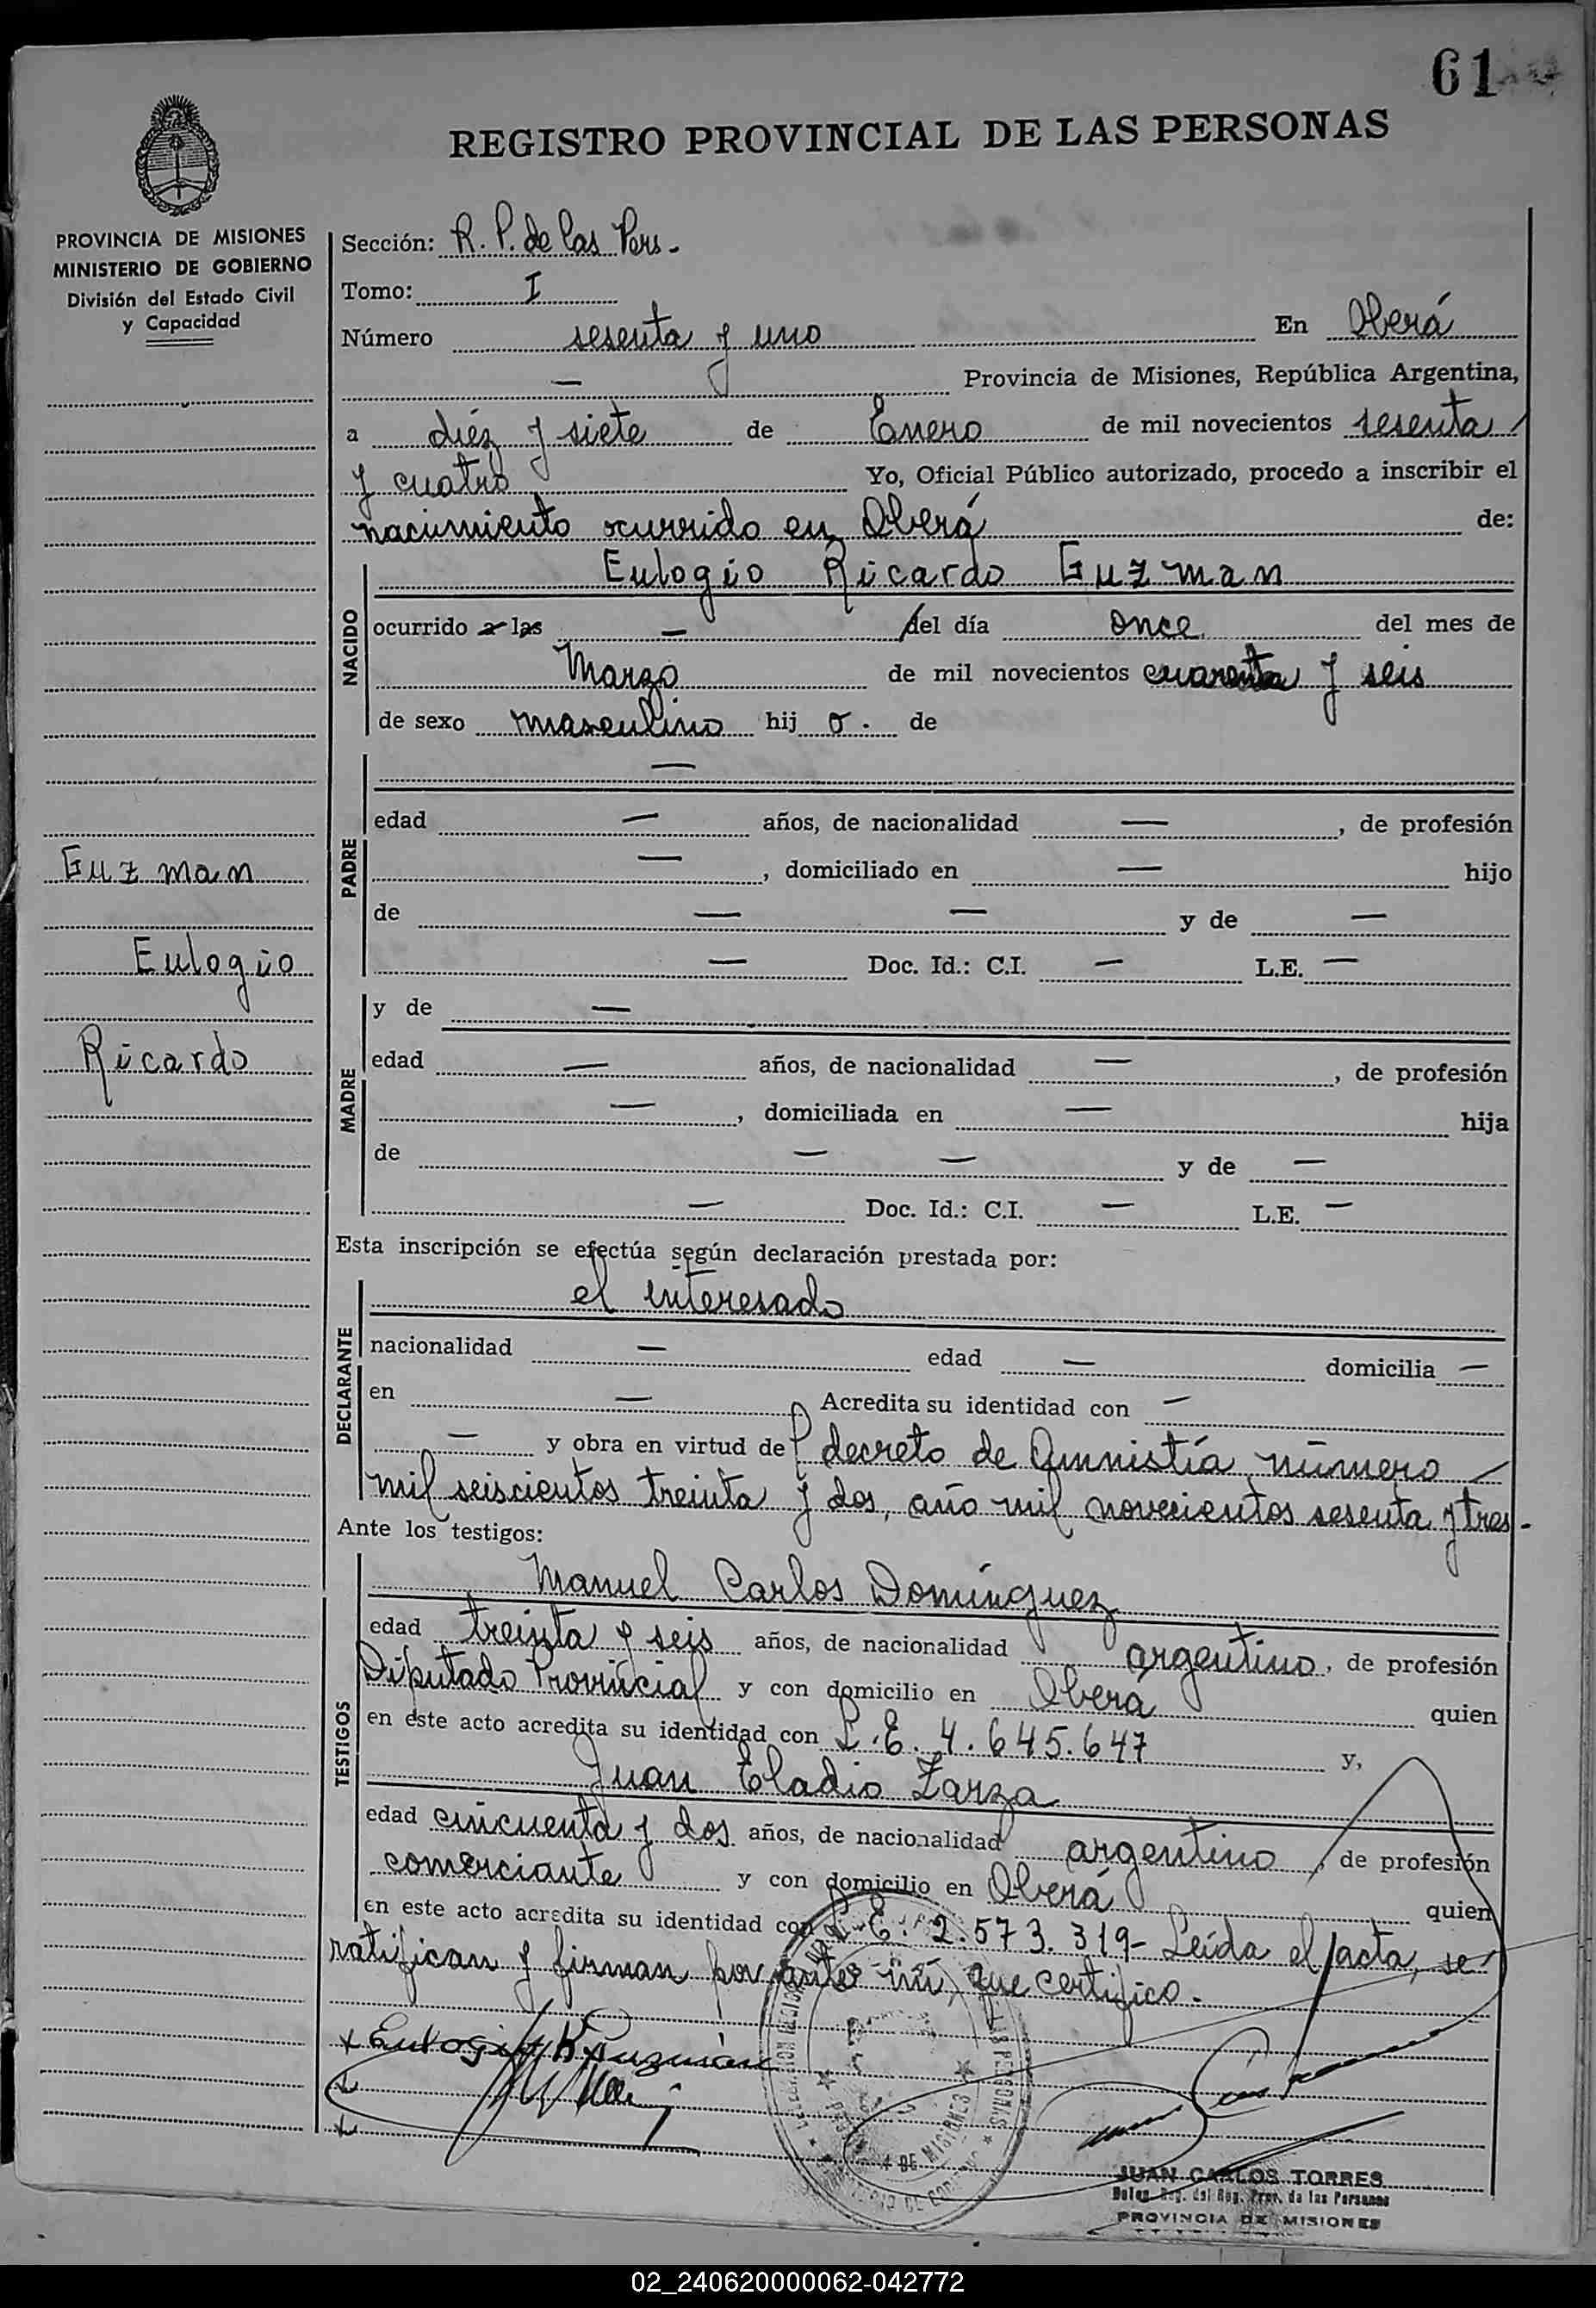 61
REGISTRO PROVINCIAL DE LAS PERSONAS
PROVINCIA DE MISIONES
MINISTERIO DE GOBIERNO
División del Estado Civil
y Capacidad
Sección: R. P. de las Pers.-
Tomo: I
Número sesenta y uno En Oberá
— Provincia de Misiones, República Argentina,
a diéz y siete de Enero de mil novecientos sesenta
y cuatro Yo, Oficial Público autorizado, procedo a inscribir el
nacimiento ocurrido en Oberá de:
NACIDO
Eulogio Ricardo Guzman
ocurrido a las — del día once del mes de
Marzo de mil novecientos cuarenta y seis
de sexo masculino hij o. de
PADRE
—
edad — años, de nacionalidad —, de profesión
—, domiciliado en — hijo
de — — y de —
— Doc. Id.: C.I. — L.E. —
Guzman
Eulogio
Ricardo
MADRE
y de —
edad — años, de nacionalidad —, de profesión
—, domiciliada en — hija
de — — y de —
— Doc. Id.: C.I. — L.E. —
Esta inscripción se efectúa según declaración prestada por:
DECLARANTE
el interesado
nacionalidad — edad — domicilia —
en — Acredita su identidad con —
— y obra en virtud de decreto de Amnistía número
mil seiscientos treinta y dos, año mil novecientos sesenta y tres-
Ante los testigos:
TESTIGOS
Manuel Carlos Domínguez
edad treinta y seis años, de nacionalidad argentino, de profesión
Diputado Provincial y con domicilio en Oberá quien
en este acto acredita su identidad con L.E. 4.645.647 y,
Juan Eladio Zarza
edad cincuenta y dos años, de nacionalidad argentino, de profesión
comerciante y con domicilio en Oberá quien
en este acto acredita su identidad con L.E. 2.573.319- Leída el acta, se
ratifican y firman por ante mí, que certifico.-
x Eulogio R Guzmán
JUAN CARLOS TORRES
Deleg. Reg. del Reg. Prov. de las Personas
PROVINCIA DE MISIONES
02_240620000062-042772